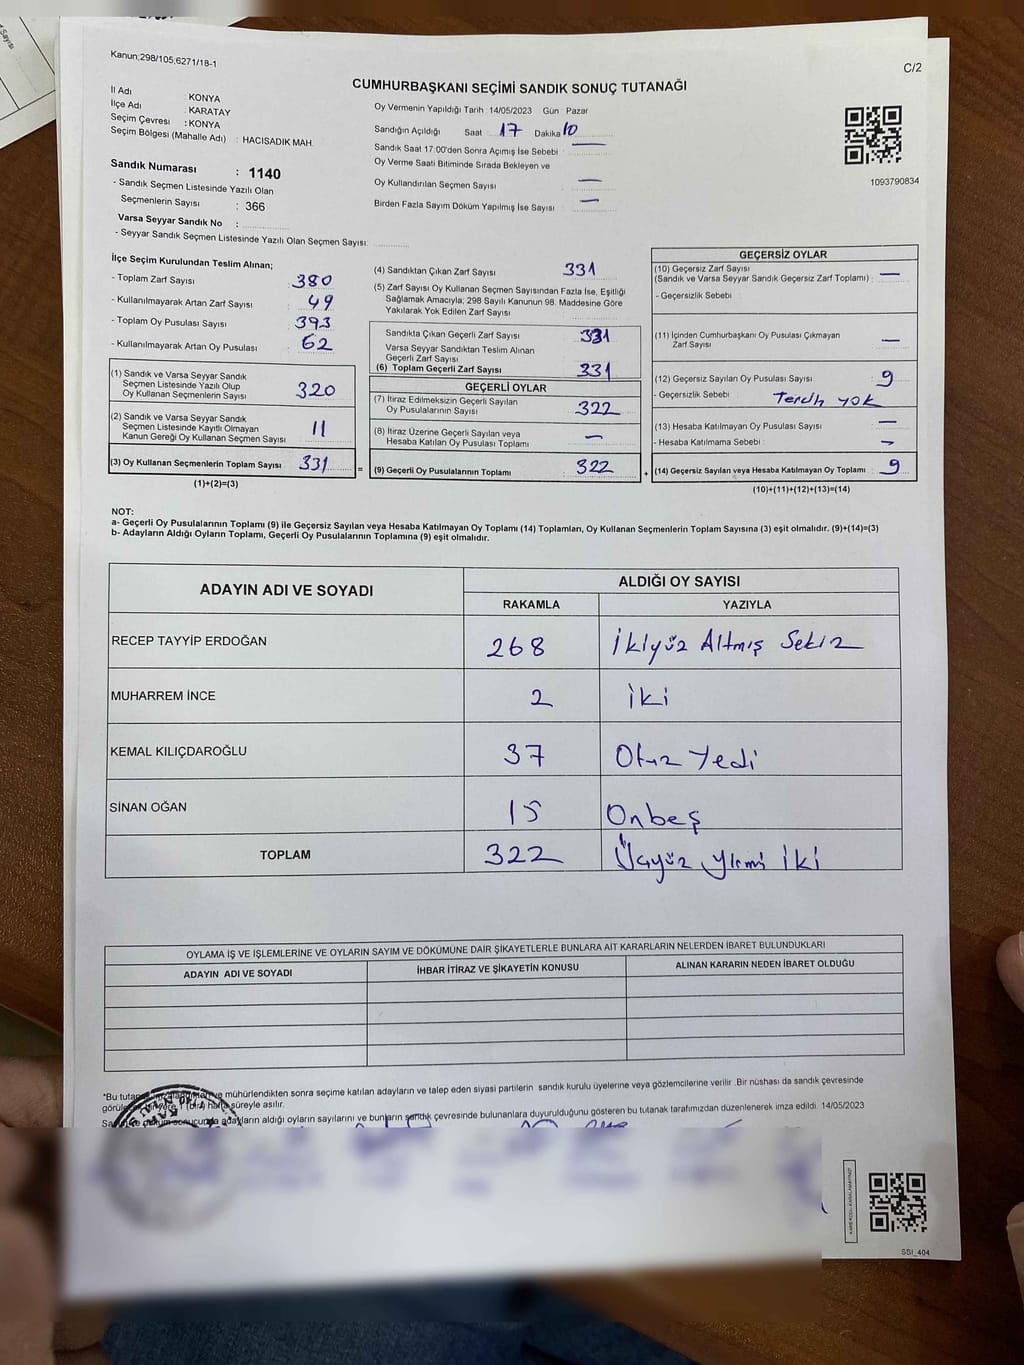 Kanun;298/105,6271/18-1
C/2
CUMHURBAŞKANI SEÇİMİ SANDIK SONUÇ TUTANAĞI
İl Adı : KONYA
İlçe Adı : KARATAY
Seçim Çevresi : KONYA
Seçim Bölgesi (Mahalle Adı) : HACISADIK MAH.
Sandık Numarası : 1140
- Sandık Seçmen Listesinde Yazılı Olan
Seçmenlerin Sayısı : 366
Varsa Seyyar Sandık No :
- Seyyar Sandık Seçmen Listesinde Yazılı Olan Seçmen Sayısı:
Oy Vermenin Yapıldığı Tarih :14/05/2023 Gün : Pazar
Sandığın Açıldığı Saat : 17 Dakika 10
Sandık Saat 17.00'den Sonra Açımış İse Sebebi :
Oy Verme Saati Bitiminde Sırada Bekleyen ve
Oy Kullandırılan Seçmen Sayısı —
Birden Fazla Sayım Döküm Yapılmış İse Sayısı : —
1093790834
İlçe Seçim Kurulundan Teslim Alınan;
- Toplam Zarf Sayısı : 380
- Kullanılmayarak Artan Zarf Sayısı : 49
- Toplam Oy Pusulası Sayısı : 393
- Kullanılmayarak Artan Oy Pusulası : 62
(1) Sandık ve Varsa Seyyar Sandık
Seçmen Listesinde Yazılı Olup
Oy Kullanan Seçmenlerin Sayısı : 320
(2) Sandık ve Varsa Seyyar Sandık
Seçmen Listesinde Kayıtlı Olmayan
Kanun Gereği Oy Kullanan Seçmen Sayısı : 11
(3) Oy Kullanan Seçmenlerin Toplam Sayısı : 331
(1)+(2)=(3)
=
(4) Sandıktan Çıkan Zarf Sayısı : 331
(5) Zarf Sayısı Oy Kullanan Seçmen Sayısından Fazla İse, Eşitliği
Sağlamak Amacıyla; 298 Sayılı Kanunun 98. Maddesine Göre
Yakılarak Yok Edilen Zarf Sayısı :
Sandıkta Çıkan Geçerli Zarf Sayısı : 331
Varsa Seyyar Sandıktan Teslim Alınan
Geçerli Zarf Sayısı :
(6) Toplam Geçerli Zarf Sayısı : 331
GEÇERLİ OYLAR
(7) İtiraz Edilmeksizin Geçerli Sayılan
Oy Pusulalarının Sayısı : 322
(8) İtiraz Üzerine Geçerli Sayılan veya
Hesaba Katılan Oy Pusulası Toplamı : —
(9) Geçerli Oy Pusulalarının Toplamı : 322
+
GEÇERSİZ OYLAR
(10) Geçersiz Zarf Sayısı
(Sandık ve Varsa Seyyar Sandık Geçersiz Zarf Toplamı) : —
- Geçersizlik Sebebi
(11) İçinden Cumhurbaşkanı Oy Pusulası Çıkmayan
Zarf Sayısı : —
(12) Geçersiz Sayılan Oy Pusulası Sayısı : 9
- Geçersizlik Sebebi : Tercih yok
(13) Hesaba Katılmayan Oy Pusulası Sayısı : —
- Hesaba Katılmama Sebebi : —
(14) Geçersiz Sayılan veya Hesaba Katılmayan Oy Toplamı : 9
(10)+(11)+(12)+(13)=(14)
NOT:
a- Geçerli Oy Pusulalarının Toplamı (9) ile Geçersiz Sayılan veya Hesaba Katılmayan Oy Toplamı (14) Toplamları, Oy Kullanan Seçmenlerin Toplam Sayısına (3) eşit olmalıdır. (9)+(14)=(3)
b- Adayların Aldığı Oyların Toplamı, Geçerli Oy Pusulalarının Toplamına (9) eşit olmalıdır.
ADAYIN ADI VE SOYADI
ALDIĞI OY SAYISI
RAKAMLA YAZIYLA
RECEP TAYYİP ERDOĞAN 268 İkiyüz Altmış Sekiz
MUHARREM İNCE 2 iki
KEMAL KILIÇDAROĞLU 37 Otuz Yedi
SİNAN OĞAN 15 Onbeş
TOPLAM 322 Üçyüz yirmi iki
OYLAMA İŞ VE İŞLEMLERİNE VE OYLARIN SAYIM VE DÖKÜMÜNE DAİR ŞİKAYETLERLE BUNLARA AİT KARARLARIN NELERDEN İBARET BULUNDUKLARI
ADAYIN ADI VE SOYADI İHBAR İTİRAZ VE ŞİKAYETİN KONUSU ALINAN KARARIN NEDEN İBARET OLDUĞU
*Bu mühürlendikten sonra seçime katılan adayların ve talep eden siyasi partilerin sandık kurulu üyelerine veya gözlemcilerine verilir .Bir nüshası da sandık çevresinde
1 (bir) hafta süreyle asılır.
adayların aldığı oyların sayılarını ve bunların sandık çevresinde bulunanlara duyurulduğunu gösteren bu tutanak tarafımızdan düzenlenerek imza edildi. 14/05/2023
SSİ_404